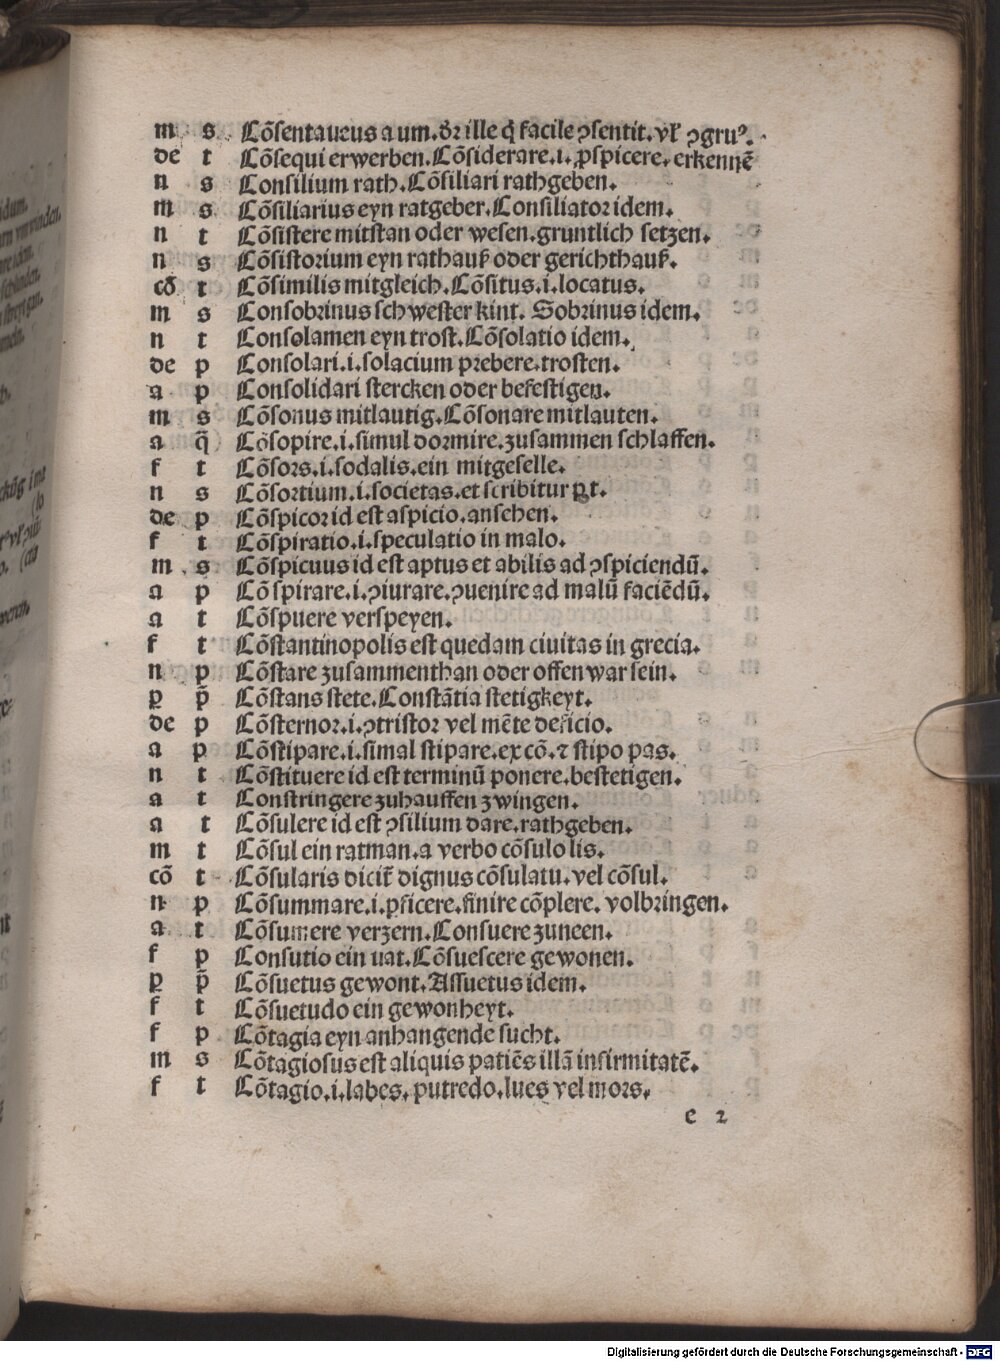 m s Cõsentaueus a um. dr̃ ille q̃ facile ꝯsentit. vl' ꝯgruꝰ.
de t Cõsequi erwerben. Cõsiderare .i. ꝓspicere. erkennẽ
n s Consilium rath. Cõsiliari rathgeben.
m s Cõsiliarius eyn ratgeber. Consiliator idem.
n t Cõsistere mitstan oder wesen. gruntlich setzen.
n s Cõsistorium eyn rathauß oder gerichthauß.
cõ t Cõsimilis mitgleich. Cõsitus .i. locatus.
m s Consobrinus schwester kint. Sobrinus idem.
n t Consolamen eyn trost. Cõsolatio idem.
de p Consolari .i. solacium prebere. trosten.
a p Consolidari stercken oder befestigen.
m s Cõsonus mitlautig. Cõsonare mitlauten.
a q̃ Cõsopire .i. simul dormire. zusammen schlaffen.
f t Cõsors .i. sodalis. ein mitgeselle.
n s Cõsortium .i. societas. et scribitur ꝑ t.
de p Cõspicor id est aspicio. ansehen.
f t Cõspiratio .i. speculatio in malo.
m s Cõspicuus id est aptus et abilis ad ꝯspiciendũ.
a p Cõspirare .i. ꝯiurare. ꝯuenire ad malũ faciẽdũ.
a t Cõspuere verspeyen.
f t Cõstantinopolis est quedam ciuitas in grecia.
n p Cõstare zusammenthan oder offenwar sein.
ꝑ p̃ Cõstans stete. Constãtia stetigkeyt.
de p Cõsternor .i. ꝯtristor vel mẽte deficio.
a p Cõstipare .i. simal stipare. ex cõ. ⁊ stipo pas.
n t Cõstituere id est terminũ ponere. bestetigen.
a t Constringere zuhauffen zwingen.
a t Cõsulere id est ꝯsilium dare. rathgeben.
m t Cõsul ein ratman. a verbo cõsulo lis.
cõ t Cõsularis dicit̃ dignus cõsulatu. vel cõsul.
n p Cõsummare .i. ꝑficere. finire cõplere. volbringen.
a t Cõsumere verzern. Consuere zuneen.
f p Consutio ein nat. Cõsuescere gewonen.
ꝑ p̃ Cõsuetus gewont. Assuetus idem.
f t Cõsuetudo ein gewonheyt.
f p Cõtagia eyn anhangende sucht.
m s Cõtagiosus est aliquis patiẽs illã infirmitatẽ.
f t Cõtagio .i. labes. putredo. lues vel mors.
e 2
Digitalisierung gefördert durch die Deutsche Forschungsgemeinschaft - DFG